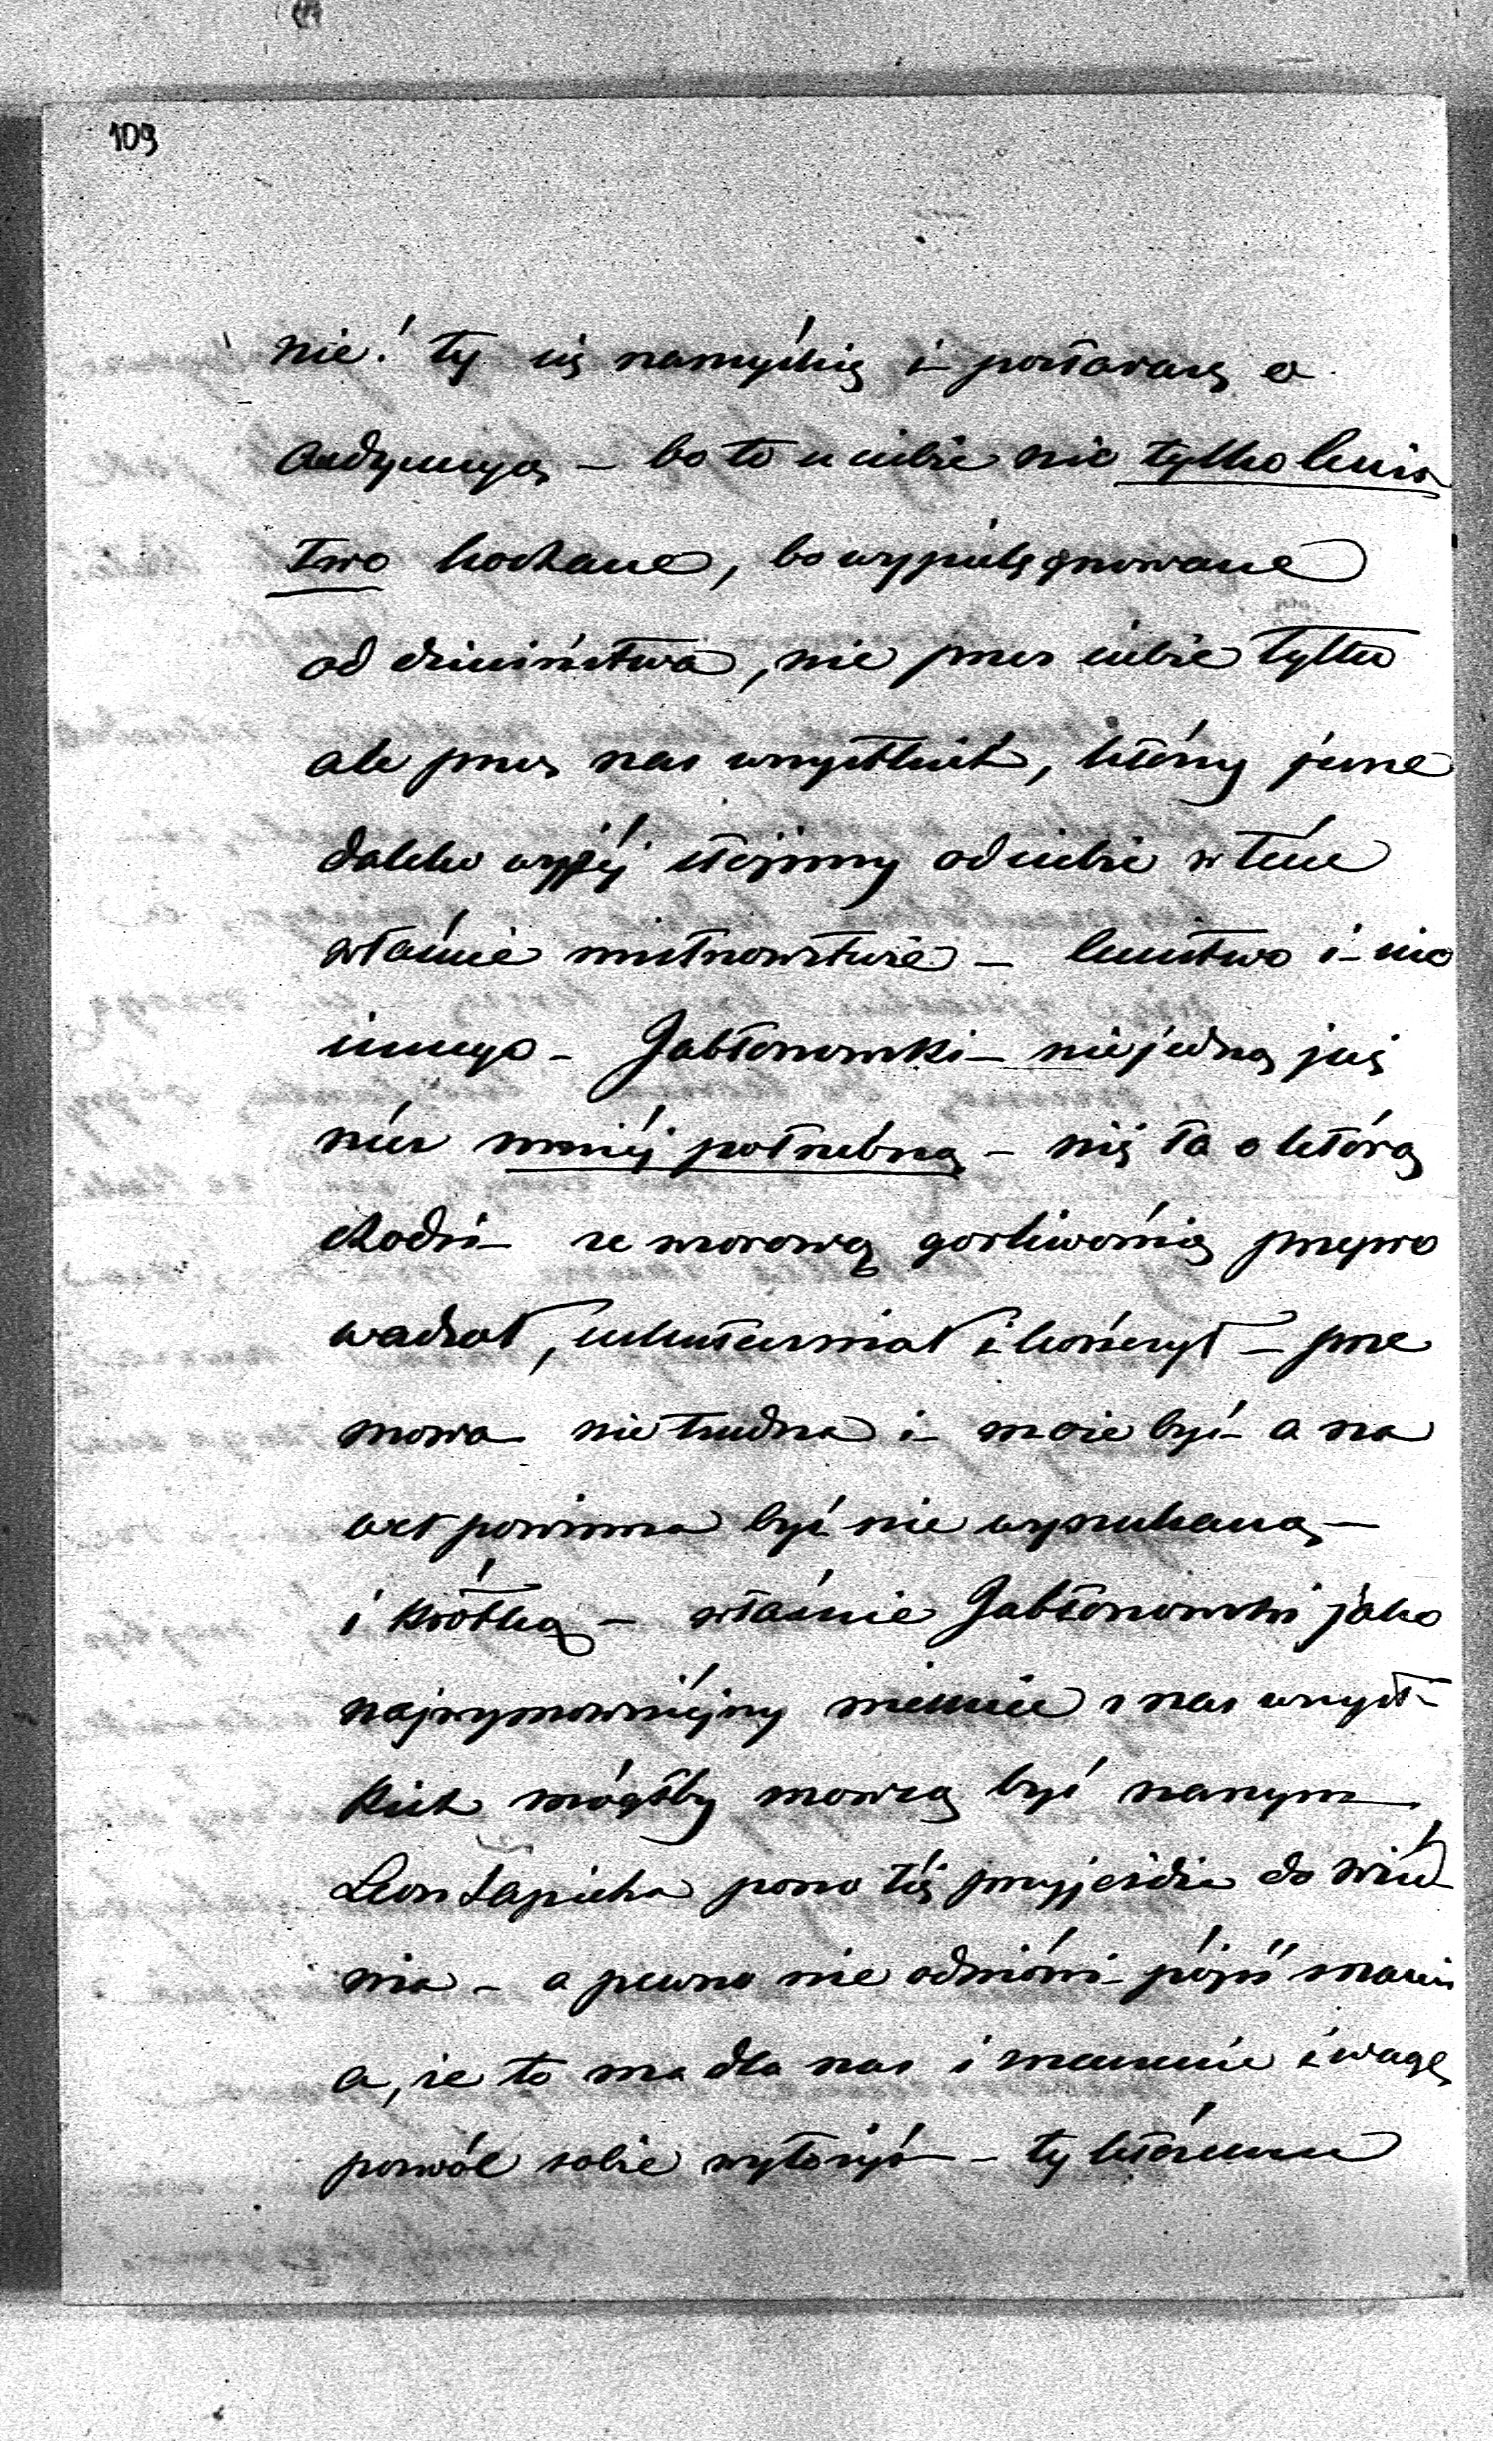 109
nie! ty się namyślisz i postarasz o
audyencyą – bo to u ciebie nic tylko lenis
two kochane, bo wypielęgnowane
od dzieciństwa, nie przez ciebie tylko
ale przez nas wszystkich, którzy jeszcze
daleko wyżéj stoimy od ciebie w tém
właśnie mistrzowstwie – lenistwo i nic
innego – Jabłonowski – niejedną już
rzecz mniéj potrzebną – niż ta o którą
chodzi – ze wzorową gorliwością przepro
wadzał, uskuteczniał i kończył – prze
mowa nie trudna i może być – a na
wet powinna być nie wyszukaną –
i krótką – właśnie Jabłonowski jako
najwymowniéjszy niemiec z nas wszyst-
kich mógłby mowcą być naszym
Leon Sapieha pono téż przyjeżdża do Wied
nia – a pewno nie odmówi – pójść znacie
a, że to ma dla nas i znaczenie i wagę
pozwól sobie wyłożyć – ty któremu